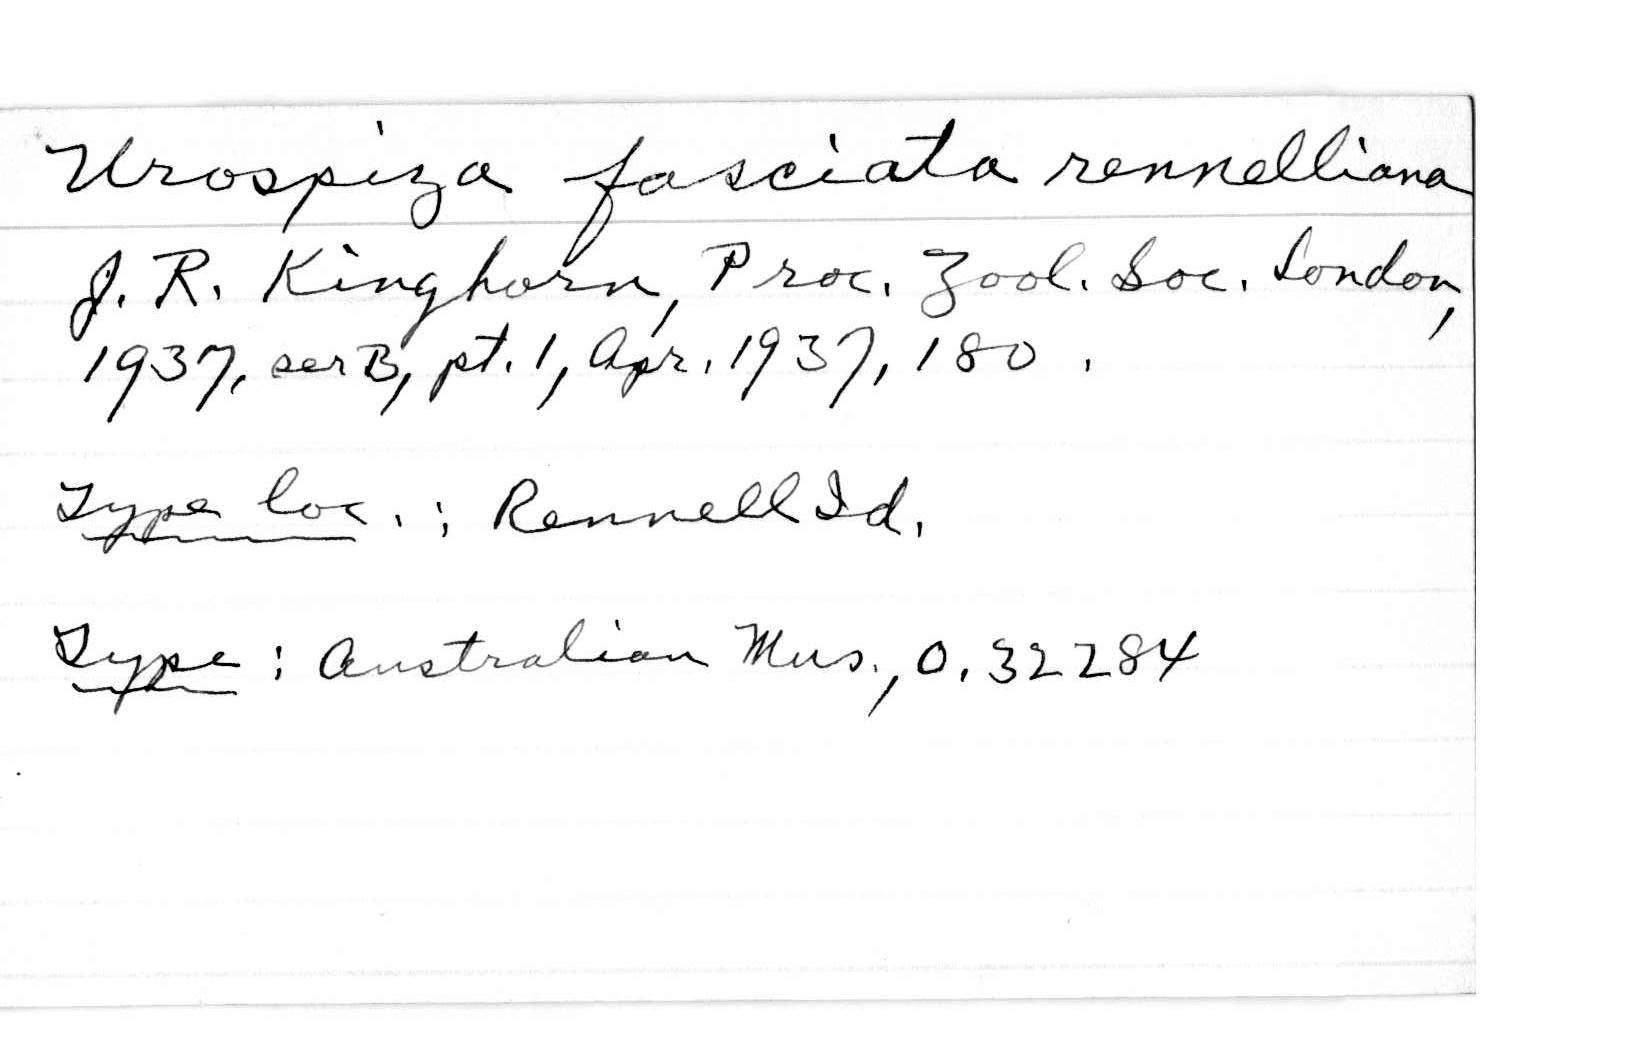 Urospiza fasciata rennelliana
J. R. Kinghorn, Proc. Zool. Soc. London,
1937, ser B, pt. 1, Apr. 1937, 180.
Type loc.: Rennell Id.
Type: Australian Mus., O. 32284